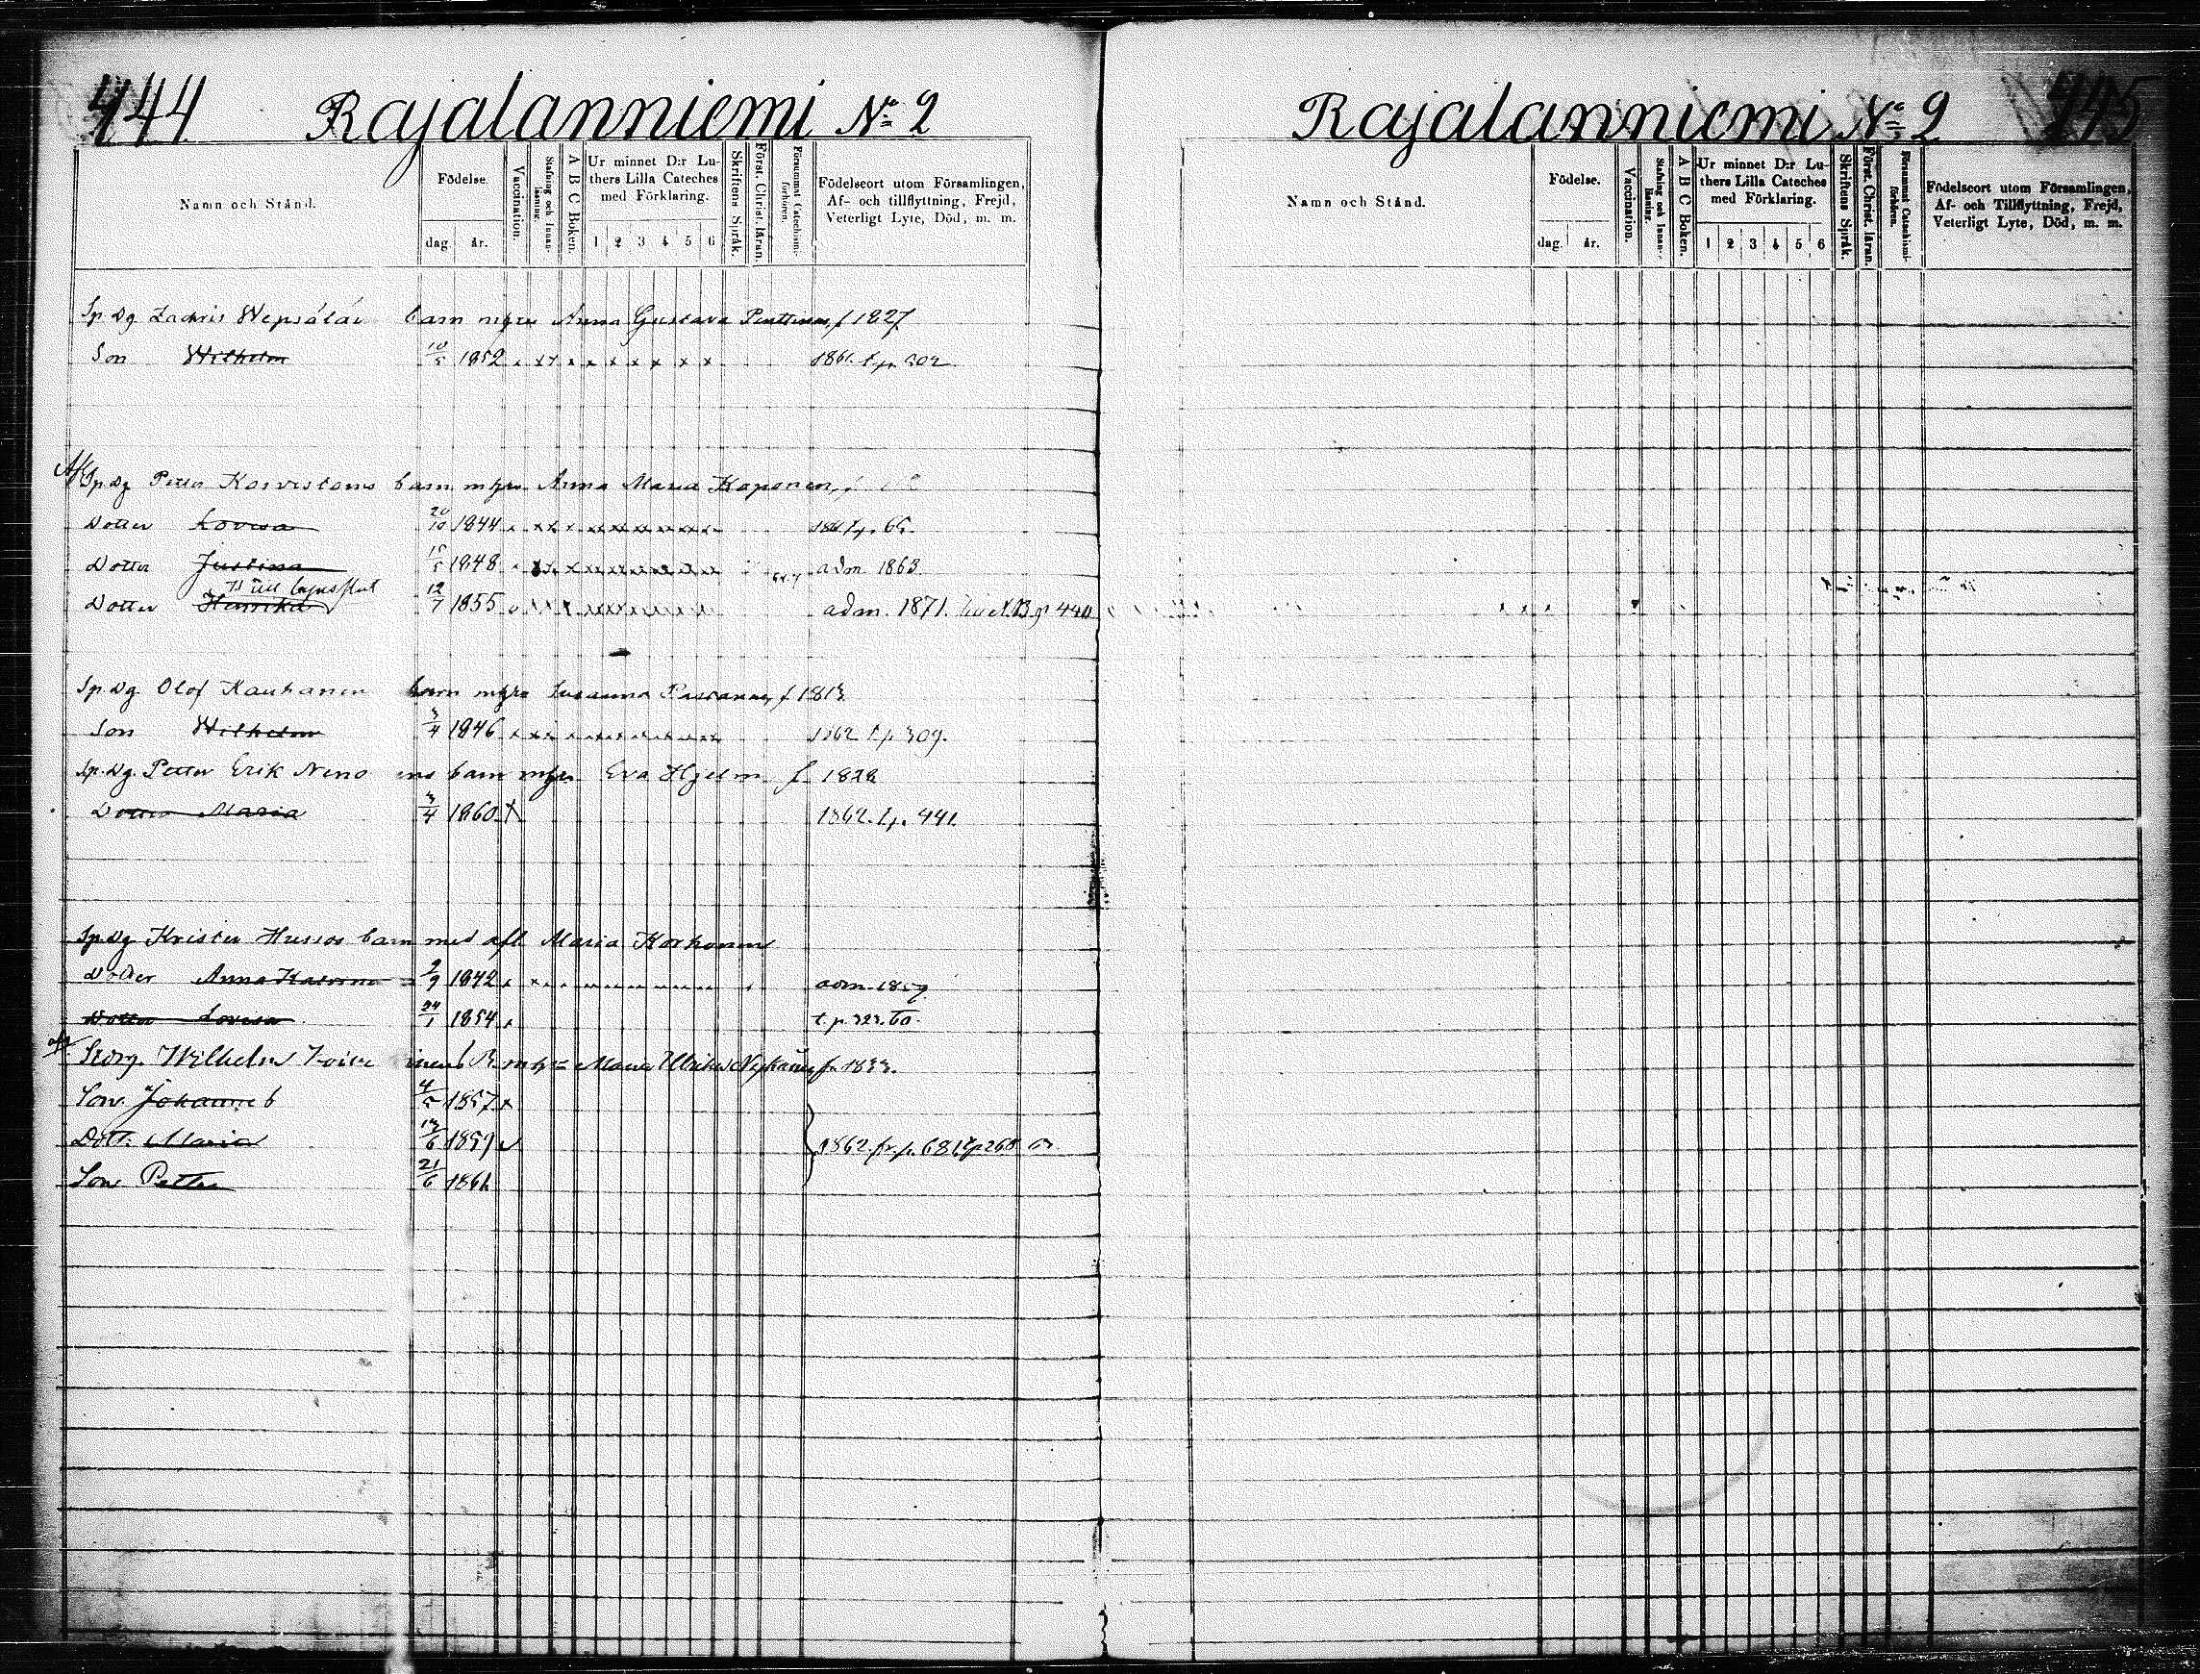 444 Rajalanniemi No 2
Namn och Stånd.
Födelse.
dag. år.
Vaccination.
Stafning och Innanläsning.
A B C Boken.
Ur minnet D:r Luthers Lilla Cateches med Förklaring.
1 2 3 4 5 6
Skriftens Språk.
Först. Christ. läran.
Försummat Catechismiförhören.
Födelseort utom Församlingen,
Af- och tillflyttning, Frejd,
Veterligt Lyte, Död, m. m.
Sp Dg Zachris Wepsäläi barn m Anna Gustava f 1827
Son Wilhelm 10/5 1852 1861. t.p. 302
Sp. Dg Petter Karvistens barn Anna Maria Koponen, f
Dotter Lovisa 20/10 1844 t.p. 65.
Dotter Justina 15/5 1848 adm 1863.
till
Dotter Henrika 12/7 1855 adm. 1871. 440
Sp. Dg Olof Kauhanen barn Susanna f 1813.
Son Wilhelm 3/4 1846 1862 t.p. 309.
Sp. Dg. Petter Erik Neno ens barn Eva Hjelm f 1828
Dotter Maria 3/4 1860 1862. t.p. 441.
Sp. Dg Krister Hussos barn med afl. Maria Korhonen
Dotter Anna 2/9 1842 adm. 1859.
Dotter Lovisa 24/1 1854 t.p. 323.
Wilhelm Maria Ulrika f. 1833.
Son Johannes 4/5 1857
Dott. Maria 13/6 1859 1862. fr. p. 681
Son Petter 21/6 1861
Rajalanniemi No 2 445
Namn och Stånd.
Födelse.
dag. år.
Vaccination.
Stafning och Innanläsning.
A B C Boken.
Ur minnet D:r Luthers Lilla Cateches med Förklaring.
1 2 3 4 5 6
Skriftens Språk.
Först. Christ. läran.
Försummat Catechismiförhören.
Födelseort utom Församlingen,
Af- och Tillflyttning, Frejd,
Veterligt Lyte, Död, m. m.